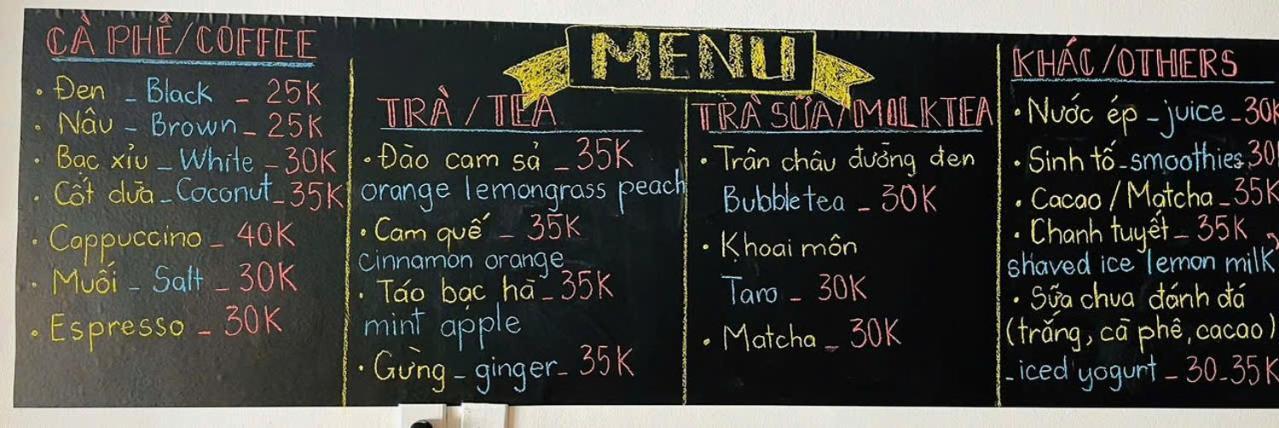 MENU
CÀ PHÊ/COFFEE
• Đen - Black - 25K
• Nâu - Brown - 25K
• Bạc xỉu - White - 30K
• Cốt dừa - Coconut - 35K
• Cappuccino - 40K
• Muối - Salt - 30K
• Espresso - 30K
TRÀ / TEA
• Đào cam sả - 35K
orange lemongrass peach
• Cam quế - 35K
cinnamon orange
• Táo bạc hà - 35K
mint apple
• Gừng - ginger - 35K
TRÀ SỮA/MILKTEA
• Trân châu đường đen
Bubbletea - 30K
• Khoai môn
Taro - 30K
• Matcha - 30K
KHÁC/OTHERS
• Nước ép - juice - 30K
• Sinh tố - smoothies 30
• Cacao / Matcha - 35K
• Chanh tuyết - 35K
shaved ice lemon milk
• Sữa chua đánh đá
(trắng, cà phê, cacao)
- iced yogurt - 30-35K